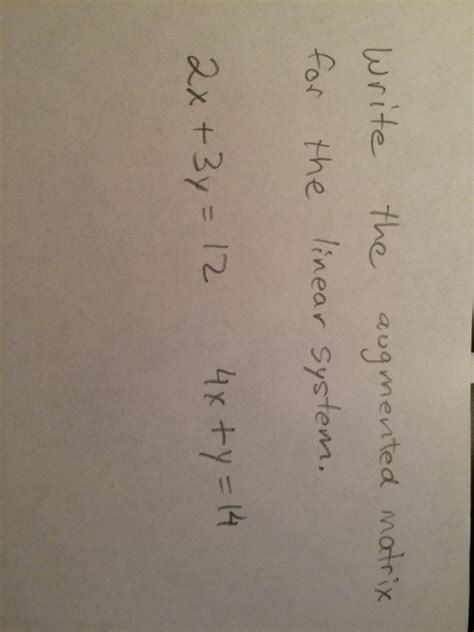 Write the augmented matrix
for the linear system.
2x + 3y = 12 4x + y = 14